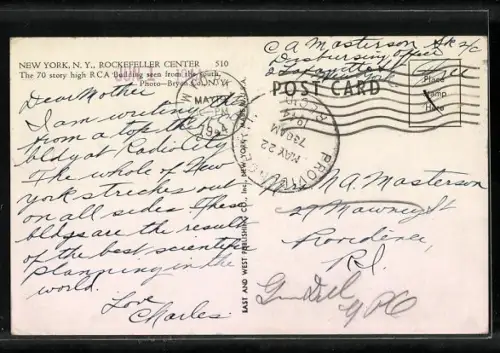 NEW YORK, N. Y., ROCKEFELLER CENTER 510
The 70 story high RCA Building seen from the south.
Photo—Bryce Co., N.Y.
Dear Mother
I am writing this
from a top the
bldg at Radio City
The whole of New
york streches out
on all sides. These
bldgs are the result
of the best scientific
planning in the
world.
Love
Charles
EAST AND WEST PUBLISHING CO., INC., NEW YORK
C A Masterson Sk 2/c
Disbursing Office
2 Lafayette St
New York
POST CARD
Place
Stamp
Here
NEW YORK
MAY
PM
1944
PROVIDENCE
MAY 22
730 AM
1944
Mrs M A. Masterson
29 Mawney St
Providence,
R.I.
GPO